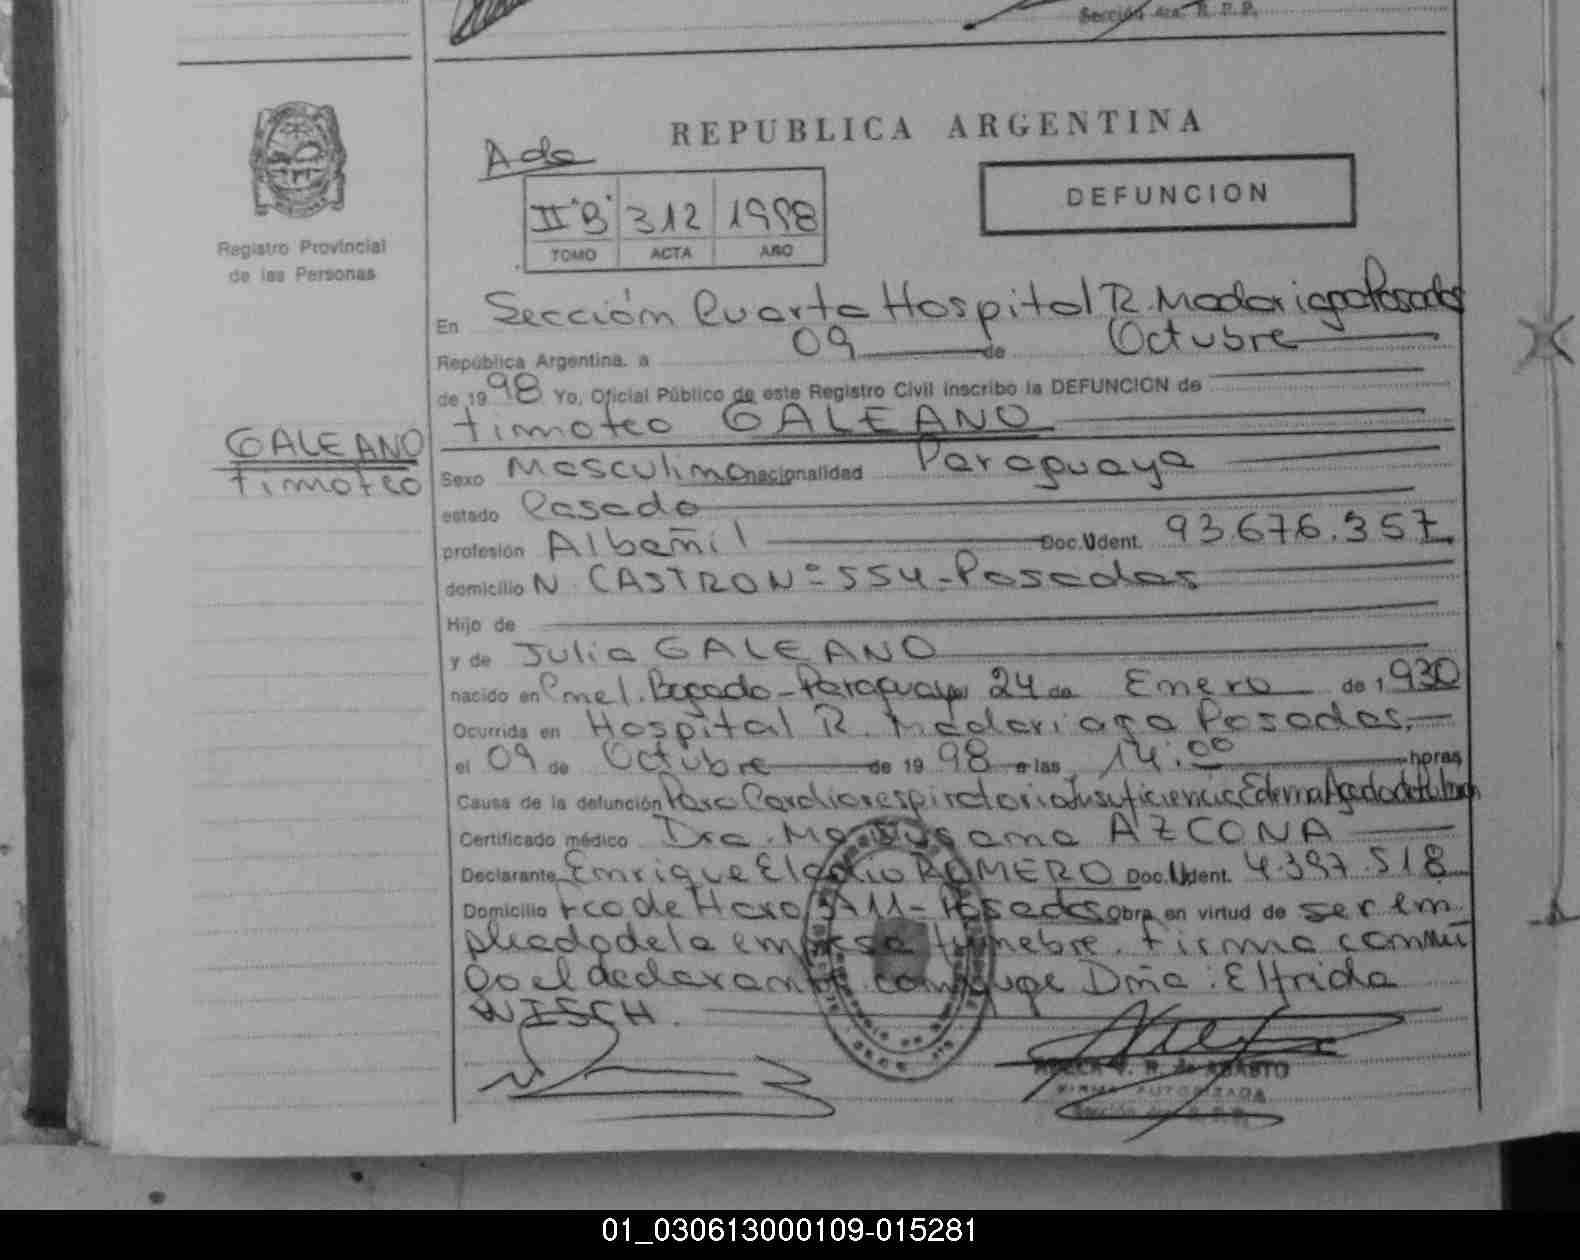 Sección 4ta. R. P. P.
REPUBLICA ARGENTINA
Ada
DEFUNCION
II "B" 312 1998
TOMO ACTA AÑO
Registro Provincial
de las Personas
En Sección Cuarta Hospital R. Madariaga Posadas
República Argentina, a 09 de Octubre
de 1998 Yo, Oficial Público de este Registro Civil inscribo la DEFUNCION de
Timoteo GALEANO
GALEANO
Timoteo
Sexo Masculino nacionalidad Paraguaya
estado Casado
profesión Albañil Doc. Ident. 93.676.357
domicilio N. CASTRO Nº 554 - Posadas
Hijo de
y de Julia GALEANO
nacido en Cnel. Bogado - Paraguay 24 de Enero de 1930
Ocurrida en Hospital R. Madariaga Posadas.
el 09 de Octubre de 1998 a las 14:00 horas
Causa de la defunción Paro Cardiorespiratorio Insuficiencia Edema Agudo de Pulmón
Certificado médico Dra. Ma. Susana AZCONA
Declarante Enrique Eladio ROMERO Doc. Ident. 4.397.518
Domicilio Fco de Haro 5411 - Posadas Obra en virtud de ser em
pleado de la empresa fúnebre. Firma conmi
go el declarante. conyuge Dña: Elfrida
WISCH.
V. R. de ABASTO
FIRMA AUTORIZADA
Sección 4ta. R. P. P.
01_030613000109-015281